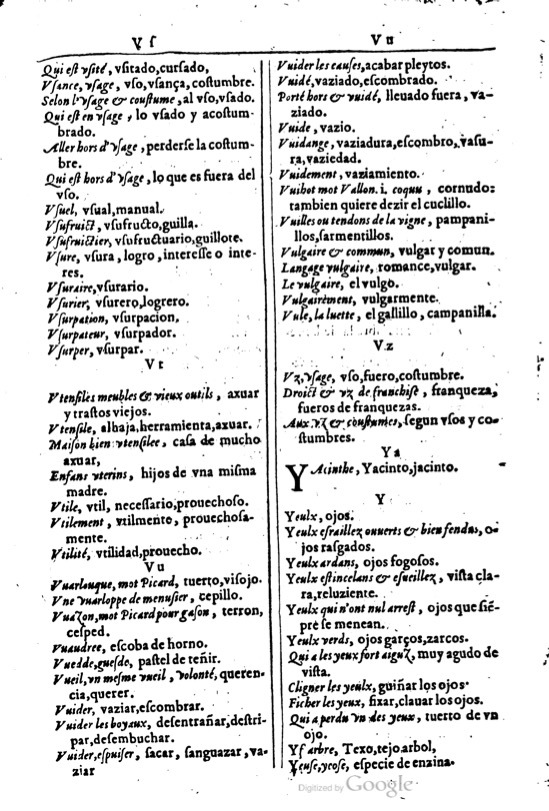 Vſ
Qui eſt vſité, vſitado, curſado,
Vſance, vſage, vſo, vſança, coſtumbre.
Selon l'vſage & couſtume, al vſo, vſado.
Qui eſt en vſage, lo vſado y acoſtum-
brado.
Aller hors d'vſage, perderſe la coſtum-
bre.
Qui eſt hors d'vſage, lo que es fuera del
vſo.
Vſuel, vſual, manual.
Vſufruict, vſufructo, guilla.
Vſufruictier, vſufructuario, guillote.
Vſure, vſura, logro, intereſſe o inte-
res.
Vſuraire, vſurario.
Vſurier, vſurero, logrero.
Vſurpation, vſurpacion.
Vſurpateur, vſurpador.
Vſurper, vſurpar.
Vt
Vtenſiles meubles & vieux outils, axuar
y traſtos viejos.
Vtenſile, alhaja, herramienta, axuar.
Maiſon bien vtenſilee, caſa de mucho
axuar,
Enfans vterins, hijos de vna miſma
madre.
Vtile, vtil, neceſſario, prouechoſo.
Vtilement, vtilmente, prouechoſa-
mente.
Vtilité, vtilidad, prouecho.
Vu
Vuarlouque, mot Picard, tuerto, viſojo.
Vne vuarloppe de menuſier, cepillo.
Vuazon, mot Picard pour gaſon, terron,
ceſped.
Vuaudree, eſcoba de horno.
Vuedde, gueſde, paſtel de teñir.
Vueil, vn meſme vueil, volonté, queren-
cia, querer.
Vuider, vaziar, eſcombrar.
Vuider les boyaux, deſentrañar, deſtri-
par, deſembuchar.
Vuider, eſpuiſer, ſacar, ſanguazar, va-
ziar
Vu
Vuider les cauſes, acabar pleytos.
Vuidé, vaziado, eſcombrado.
Porté hors & vuidé, lleuado fuera, va-
ziado.
Vuide, vazio.
Vuidange, vaziadura, eſcombro, vaſu-
ra, vaziedad.
Vuidement, vaziamiento.
Vuihot mot Vallon. i. coquu, cornudo:
tambien quiere dezir el cuclillo.
Vuilles ou tendons de la vigne, pampani-
llos, ſarmentillos.
Vulgaire & commun, vulgar y comun.
Langage vulgaire, romance, vulgar.
Le vulgaire, el vulgo.
Vulgairement, vulgarmente.
Vule, la luette, el gallillo, campanilla.
Vz
Vz, vſage, vſo, fuero, coſtumbre.
Droict & vz de franchiſe, franqueza,
fueros de franquezas.
Aux vz & couſtumes, ſegun vſos y co-
ſtumbres.
Ya
YAcinthe, Yacinto, jacinto.
Y
Yeulx, ojos.
Yeulx eſraillez ouuerts & bien fendus, o-
jos raſgados.
Yeulx ardans, ojos fogoſos.
Yeulx eſtincelans & eſueillez, viſta cla-
ra, reluziente.
Yeulx qui n'ont nul arreſt, ojos que ſiē-
pre ſe menean.
Yeulx verds, ojos garços, zarcos.
Qui a les yeux fort aiguz, muy agudo de
viſta.
Cligner les yeulx, guiñar los ojos.
Ficher les yeux, fixar, clauar los ojos.
Qui a perdu vn des yeux, tuerto de vn
ojo.
Yf arbre, Texo, tejo arbol,
Yeuſe, ycoſe, eſpecie de enzina.
Digitized by Google